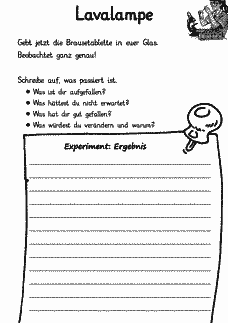 Lavalampe
Gebt jetzt die Brausetablette in euer Glas.
Beobachtet ganz genau!
Schreibe auf, was passiert ist.
• Was ist dir aufgefallen?
• Was hättest du nicht erwartet?
• Was hat dir gut gefallen?
• Was würdest du verändern und warum?
Experiment: Ergebnis